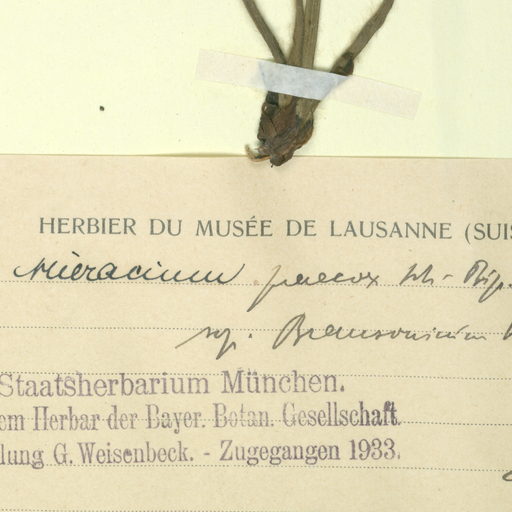 HERBIER DU MUSÉE DE LAUSANNE (SUIS
Hieracium praecox Sch-Bip.
Staatsherbarium München.
em Herbar der Bayer. Botan. Gesellschaft
lung G. Weisenbeck. - Zugegangen 1933.